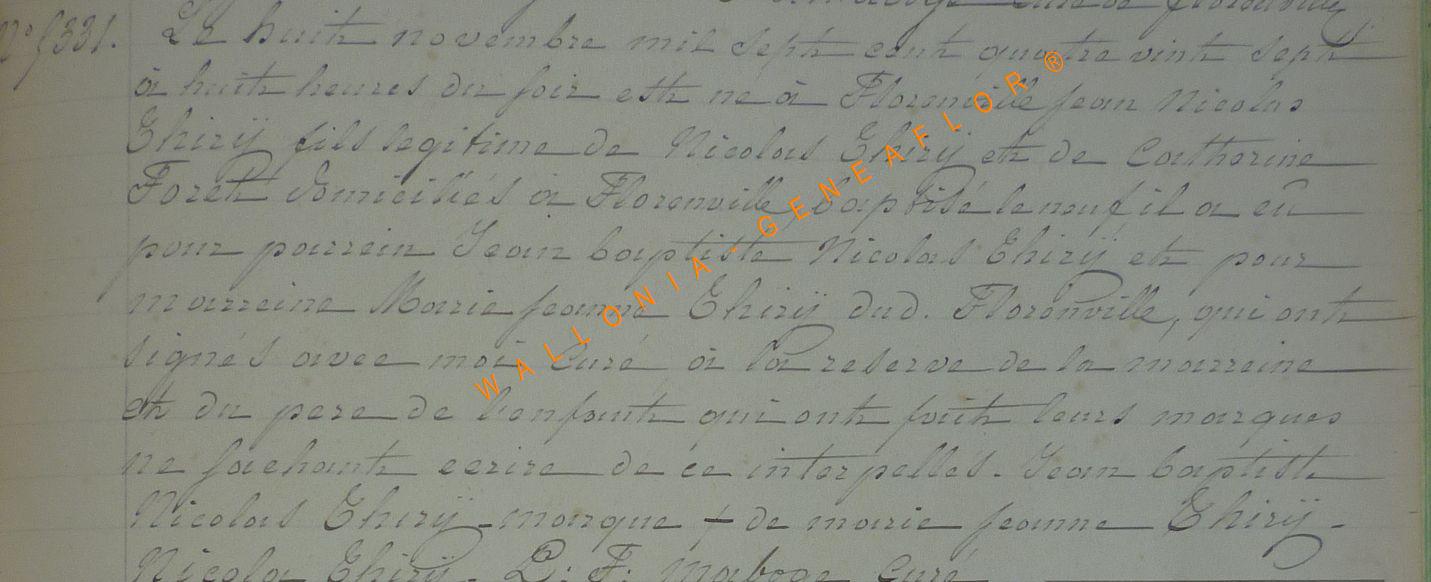 Curé de florenville
N° 5331. Le huit novembre mil sept cent quatre vint sept
à huit heures du soir est ne à Florenville jean Nicolas
Thirÿ fils legitime de Nicolas Thirÿ et de Catherine
Foret domiciliés à Florenville, baptisé le neuf il a eu
pour parrein Jean baptiste Nicolas Thirÿ et pour
marreine Marie jeanne Thirÿ dud. Florenville, qui ont
signés avec moi Curé à la reserve de la marreine
et du pere de l'enfant qui ont fait leurs marques
ne sachant ecrire de ce interpellés. Jean baptiste
Nicolas Thirÿ - marque + de marie jeanne Thirÿ -
Nicola Thirÿ - L. F. maboge Curé
WALLONIA - GENEAFLOR ®